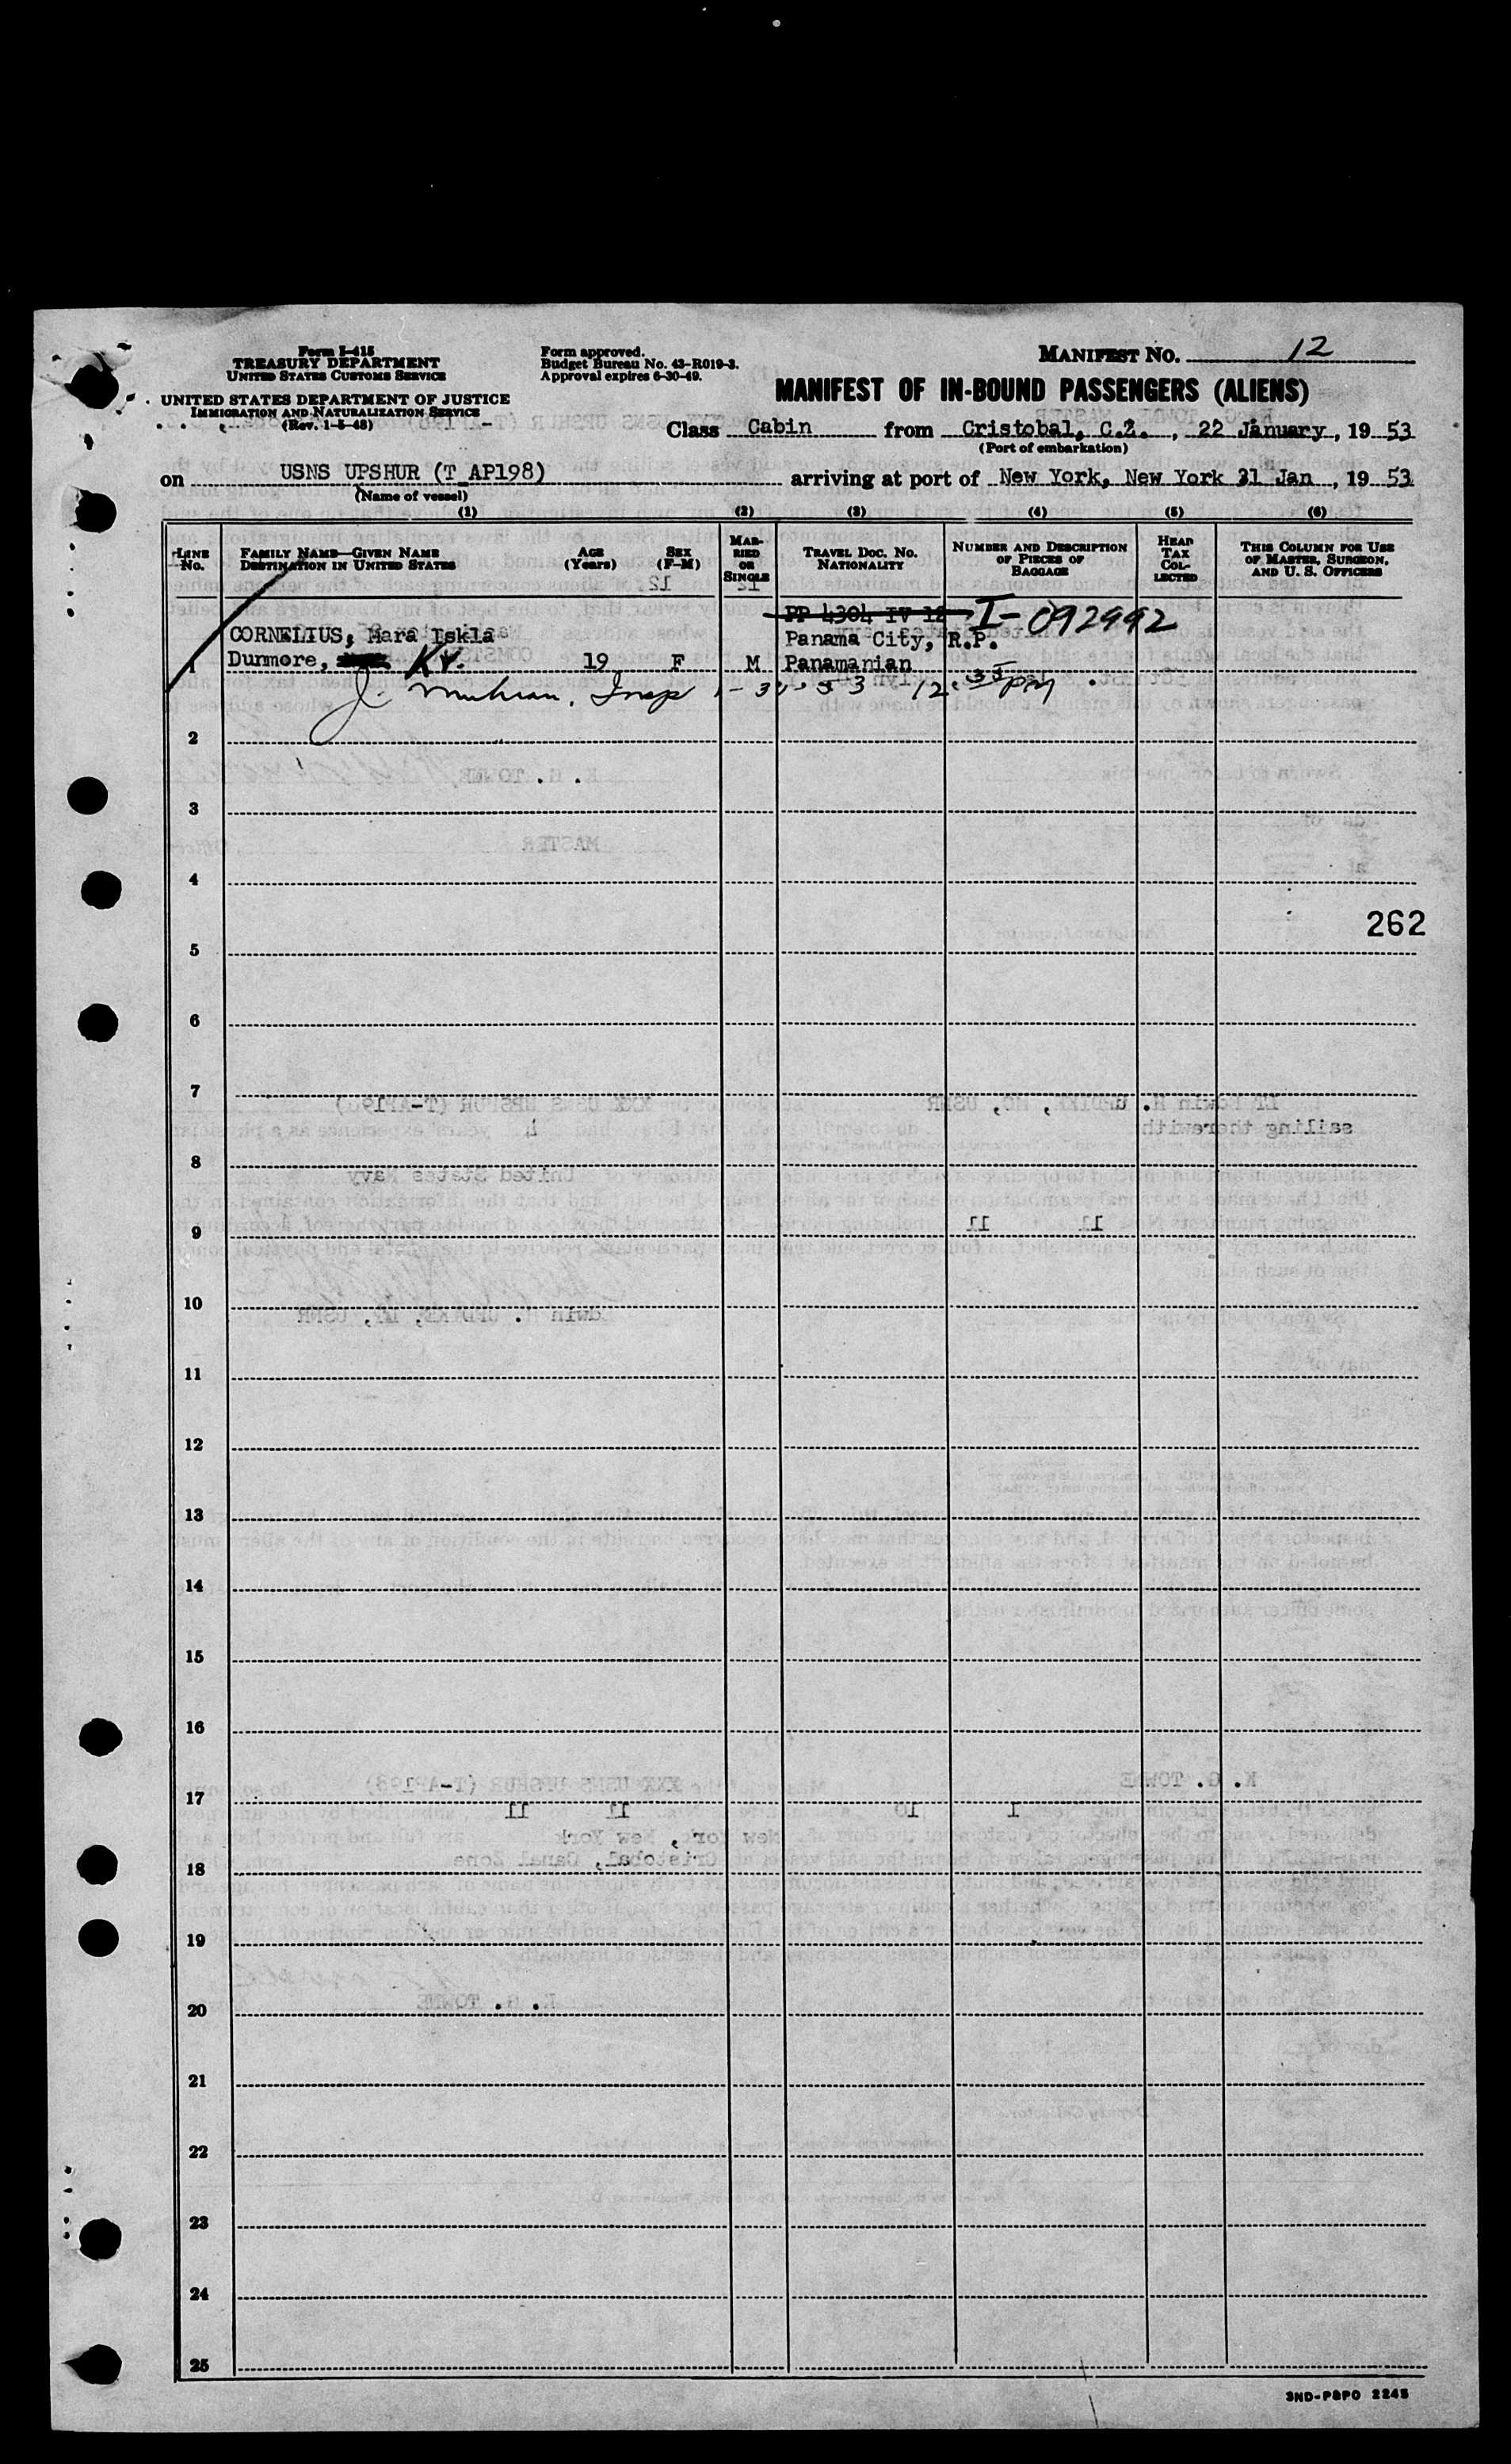 Form I-415
TREASURY DEPARTMENT
UNITED STATES CUSTOMS SERVICE
UNITED STATES DEPARTMENT OF JUSTICE
IMMIGRATION AND NATURALIZATION SERVICE
(Rev. 1-5-48)
Form approved.
Budget Bureau No. 43-R019-3.
Approval expires 6-30-49.
MANIFEST NO. 12
MANIFEST OF IN-BOUND PASSENGERS (ALIENS)
Class Cabin from Cristobal, C.Z. , 22 January , 19 53
(Port of embarkation)
on USNS UPSHUR (T_AP198) arriving at port of New York, New York 31 Jan , 19 53
(Name of vessel)
(1) (2) (3) (4) (5) (6)
LINE No.
FAMILY NAME—GIVEN NAME
DESTINATION IN UNITED STATES
AGE (Years)
SEX (F-M)
MARRIED OR SINGLE
TRAVEL DOC. NO.
NATIONALITY
NUMBER AND DESCRIPTION OF PIECES OF BAGGAGE
HEAD TAX COLLECTED
THIS COLUMN FOR USE OF MASTER, SURGEON, AND U. S. OFFICERS
PP 4304 IV 12 I-092992
CORNELIUS, Mara Iskla Panama City, R.P.
1 Dunmore, Ky. 19 F M Panamanian
J. Insp 1-30-53 12:35 PM
2
3
4
262
5
6
7
8
9
10
11
12
13
14
15
16
17
18
19
20
21
22
23
24
25
3ND-P&PO 2245